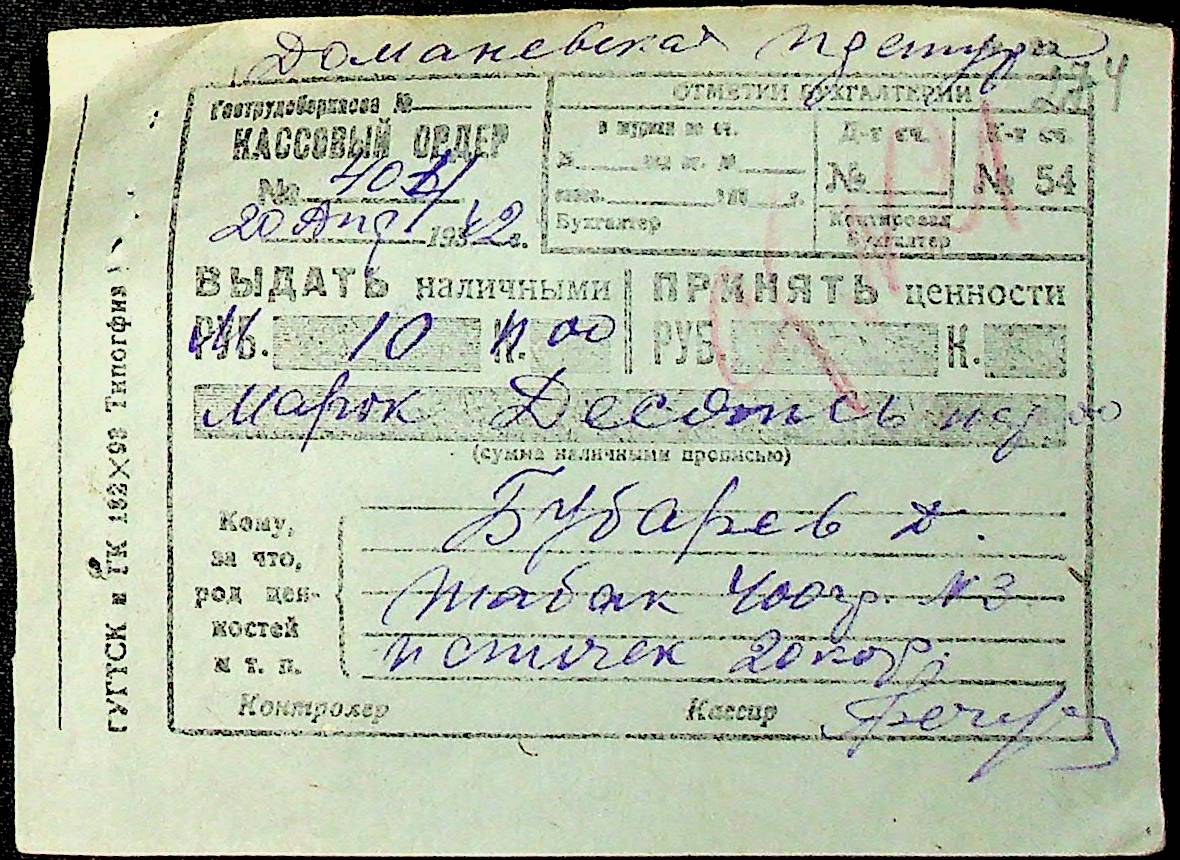 Доманевская претура
274
Гострудсберкасса №
КАССОВЫЙ ОРДЕР
№ 401
20 Апр 1942 г.
ОТМЕТКИ БУХГАЛТЕРИИ
в журнал по сч.
№
193 г.
Бухгалтер
Д-т сч.
№
К-т сч.
№ 54
Контировал
Бухгалтер
ВЫДАТЬ наличными
РУБ. 10 К. 00
ПРИНЯТЬ ценности
РУБ. К.
Марок Десять пф 00
(сумма наличными прописью)
Кому,
за что,
род цен-
ностей
и т. п.
Бубарев Д.
Табак 400гр. №3
и спичек 20кор.
Контролер
Кассир
ГУГТСК и ГК 132×93 Типогфия